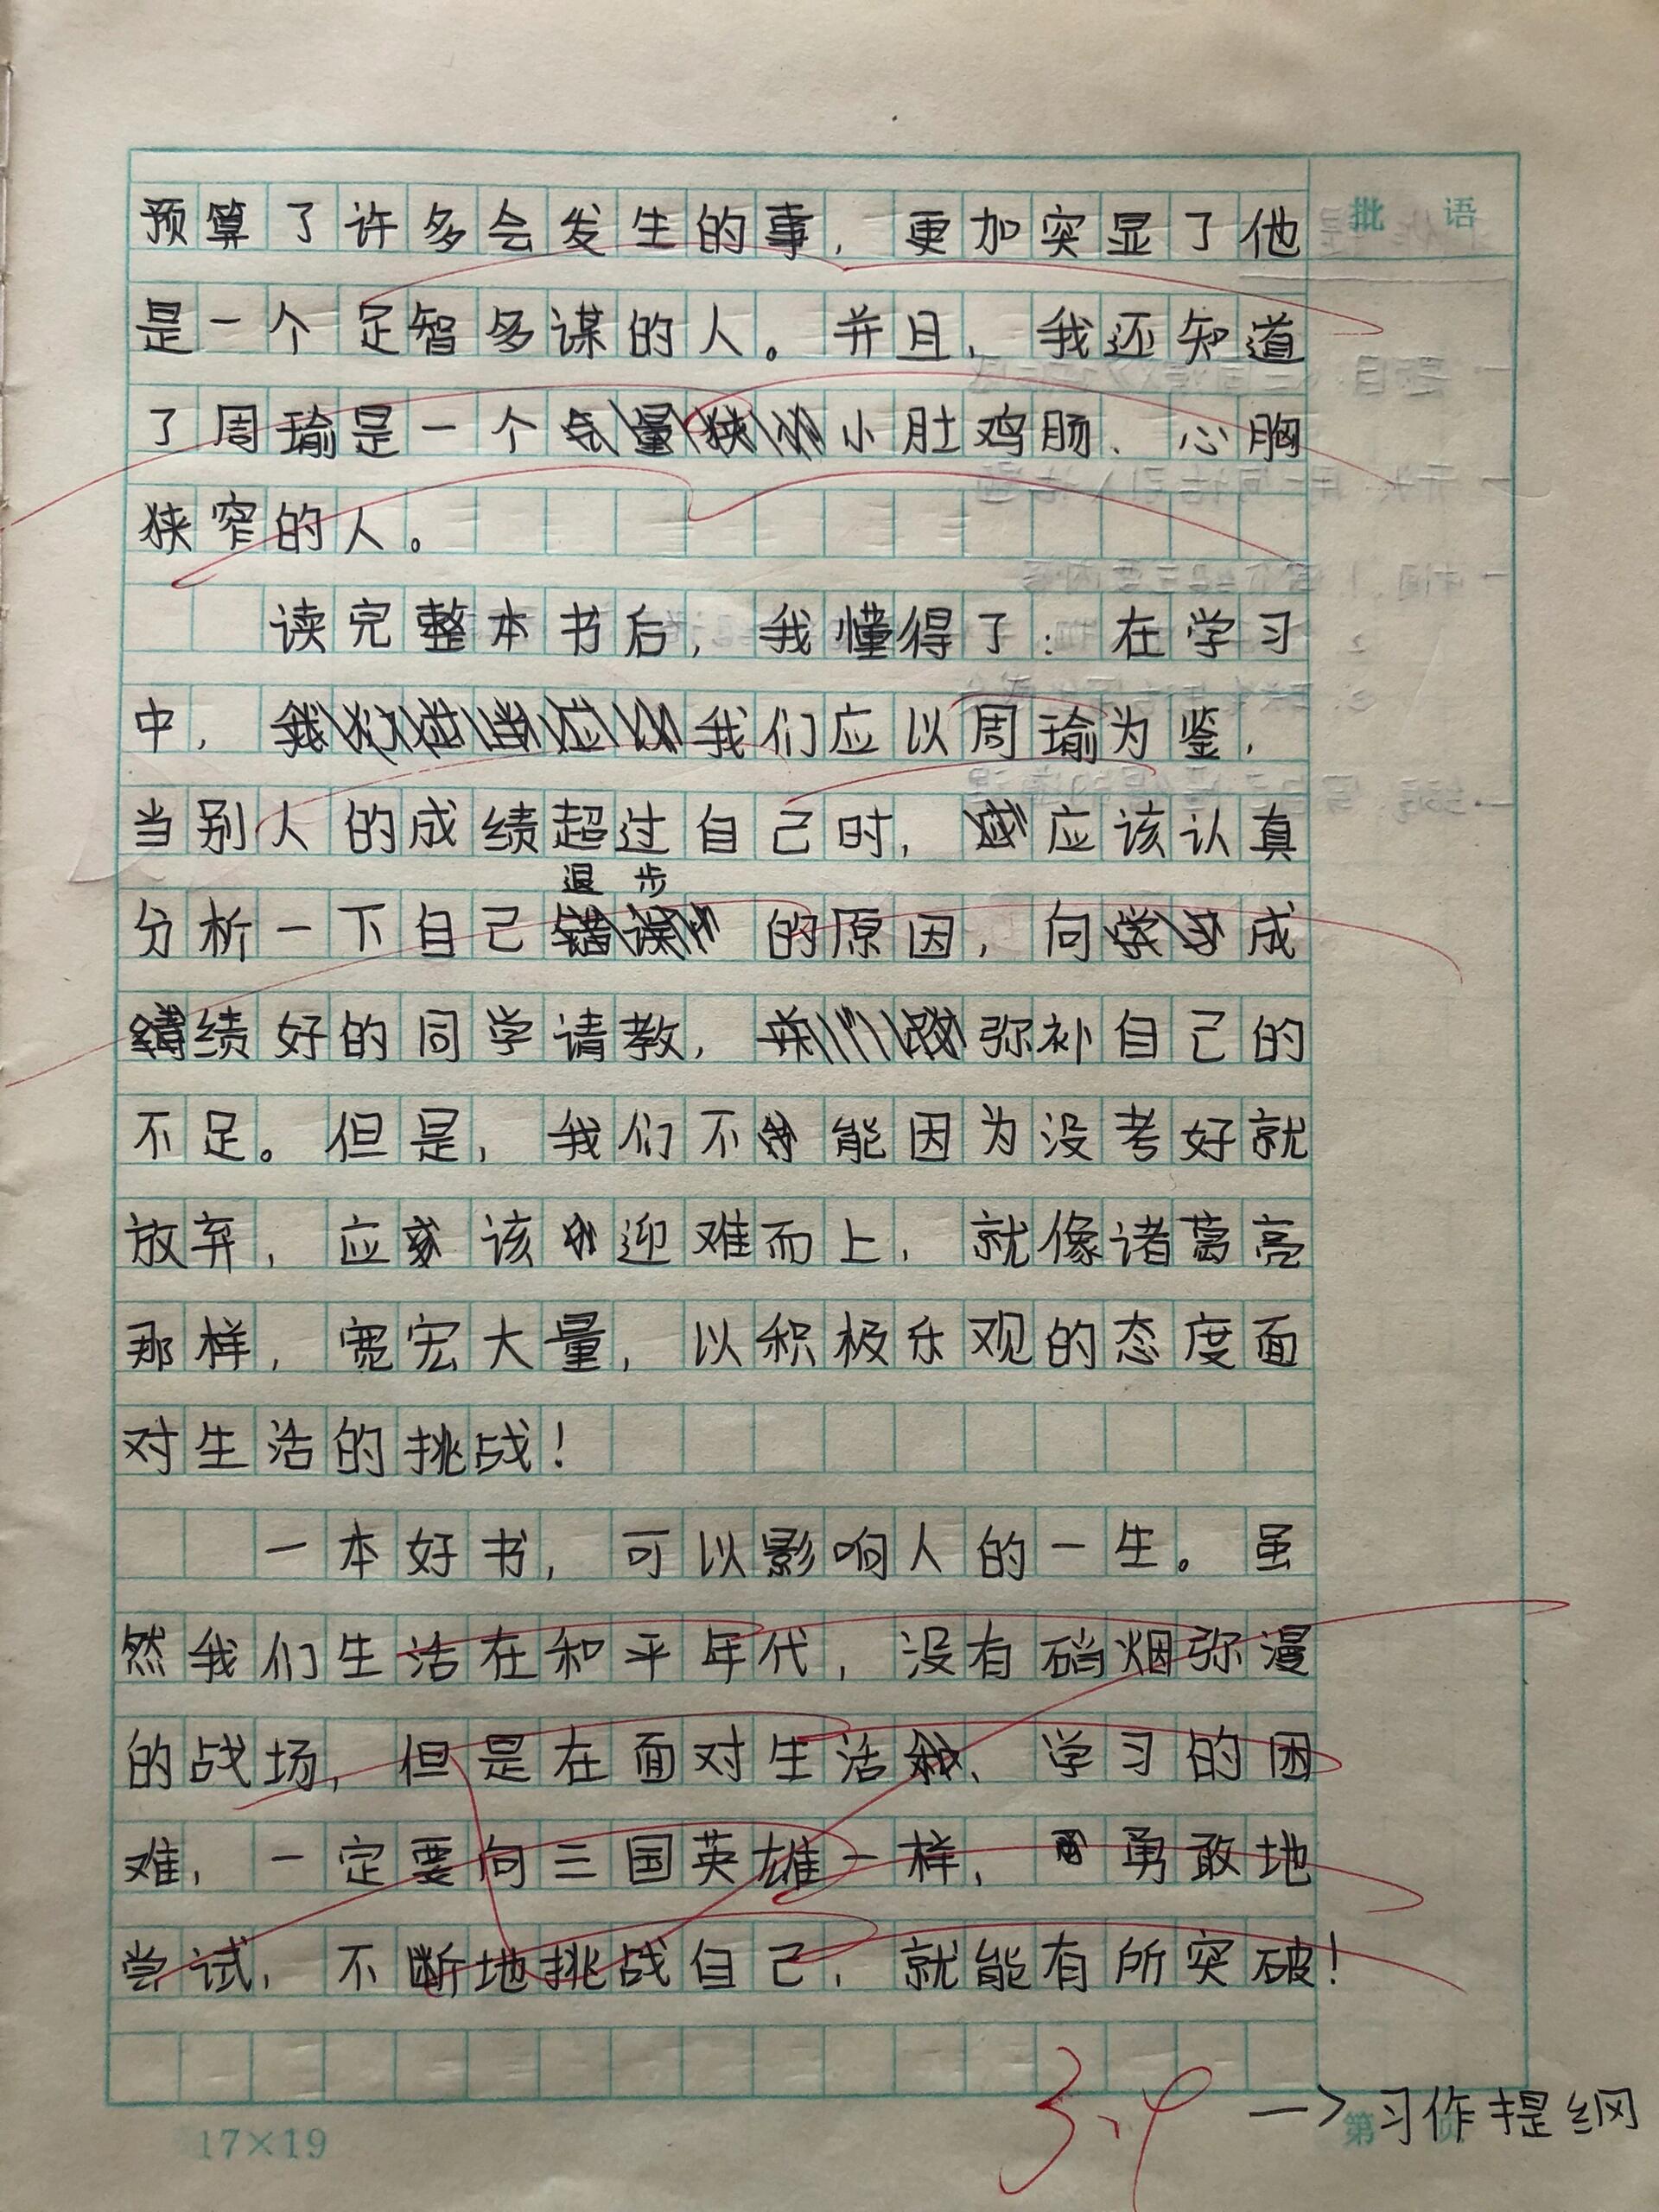 批语
预算了许多会发生的事，更加突显了他
是一个足智多谋的人。并且，我还知道
了周瑜是一个小肚鸡肠、心胸
狭窄的人。
读完整本书后，我懂得了：在学习
中，我们应以周瑜为鉴，
当别人的成绩超过自己时，应该认真
退步
分析一下自己的原因，向成
绩好的同学请教，弥补自己的
不足。但是，我们不能因为没考好就
放弃，应该迎难而上，就像诸葛亮
那样，宽宏大量，以积极乐观的态度面
对生活的挑战！
一本好书，可以影响人的一生。虽
然我们生活在和平年代，没有硝烟弥漫
的战场，但是在面对生活、学习的困
难，一定要向三国英雄一样，勇敢地
尝试，不断地挑战自己，就能有所突破！
3.9
—>习作提纲
17×19
第 页